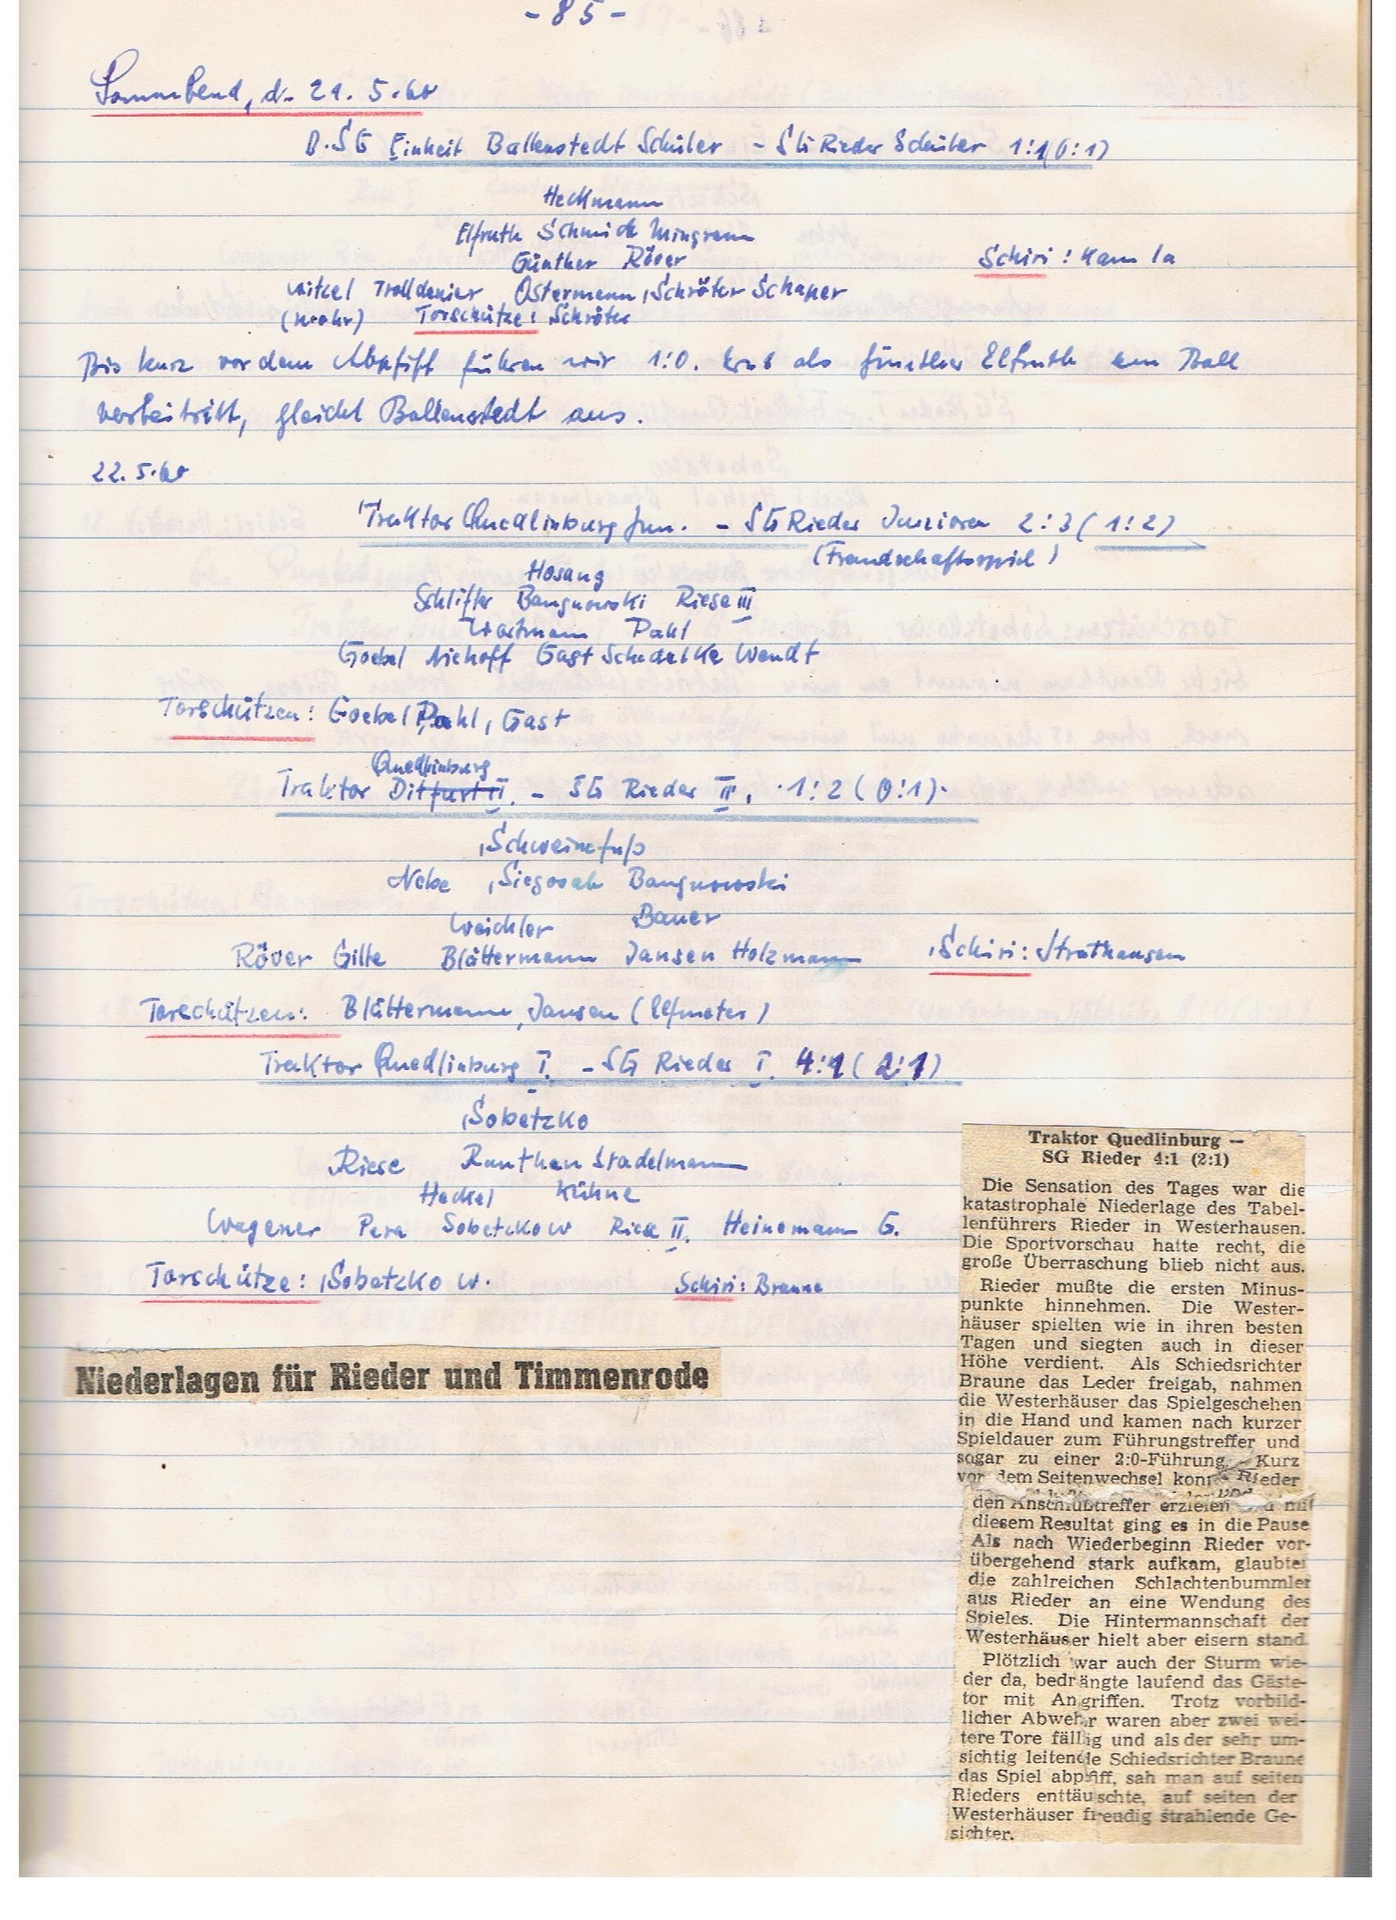 - 85 -
Sonnabend, d. 21. 5. 60
B.SG Einheit Ballenstedt Schüler - SG Rieder Schüler 1:1 (0:1)
Heckmann
Elfruth Schmidt Mingram
Günther Röver
Schiri: Kamla
Witzel Trolldenier Ostermann, Schröter Schaper
Torschütze: Schröter
Bis kurz vor dem Abpfiff führen wir 1:0. Erst als Elfruth am Ball
vorbeitritt, gleicht Ballenstedt aus.
22. 5. 60
Traktor Quedlinburg Jun. - SG Rieder Junioren 2:3 (1:2)
(Freundschaftsspiel)
Hosang
Schlifter Bangnowski Riese III
Wortmann Pahl
Goebel Niehoff Gast Schedelke Wendt
Torschützen: Goebel Pahl, Gast
Quedlinburg
Traktor Ditfurt II. - SG Rieder II. 1:2 (0:1).
Schweinefuß
Nebe Siegosch Bangnowski
Weichler Bauer
Röver Gille Blättermann Jansen Holzmann Schiri: Strathausen
Torschützen: Blättermann, Jansen (Elfmeter)
Traktor Quedlinburg I. - SG Rieder I. 4:1 (2:1)
Sobetzko
Riese Ranthan Stadelmann
Heckel Kühne
Wagener Pera Sobetzko W Riese II. Heinemann G.
Torschütze: Sobetzko W. Schiri: Braune
Niederlagen für Rieder und Timmenrode
Traktor Quedlinburg —
SG Rieder 4:1 (2:1)
Die Sensation des Tages war die
katastrophale Niederlage des Tabel-
lenführers Rieder in Westerhausen.
Die Sportvorschau hatte recht, die
große Überraschung blieb nicht aus.
Rieder mußte die ersten Minus-
punkte hinnehmen. Die Wester-
häuser spielten wie in ihren besten
Tagen und siegten auch in dieser
Höhe verdient. Als Schiedsrichter
Braune das Leder freigab, nahmen
die Westerhäuser das Spielgeschehen
in die Hand und kamen nach kurzer
Spieldauer zum Führungstreffer und
sogar zu einer 2:0-Führung. Kurz
vor dem Seitenwechsel konnte Rieder
den Anschlußtreffer erzielen und mit
diesem Resultat ging es in die Pause
Als nach Wiederbeginn Rieder vor-
übergehend stark aufkam, glaubten
die zahlreichen Schlachtenbummler
aus Rieder an eine Wendung des
Spieles. Die Hintermannschaft der
Westerhäuser hielt aber eisern stand.
Plötzlich war auch der Sturm wie-
der da, bedrängte laufend das Gäste-
tor mit Angriffen. Trotz vorbild-
licher Abwehr waren aber zwei wei-
tere Tore fällig und als der sehr um-
sichtig leitende Schiedsrichter Braune
das Spiel abpfiff, sah man auf seiten
Rieders enttäuschte, auf seiten der
Westerhäuser freudig strahlende Ge-
sichter.